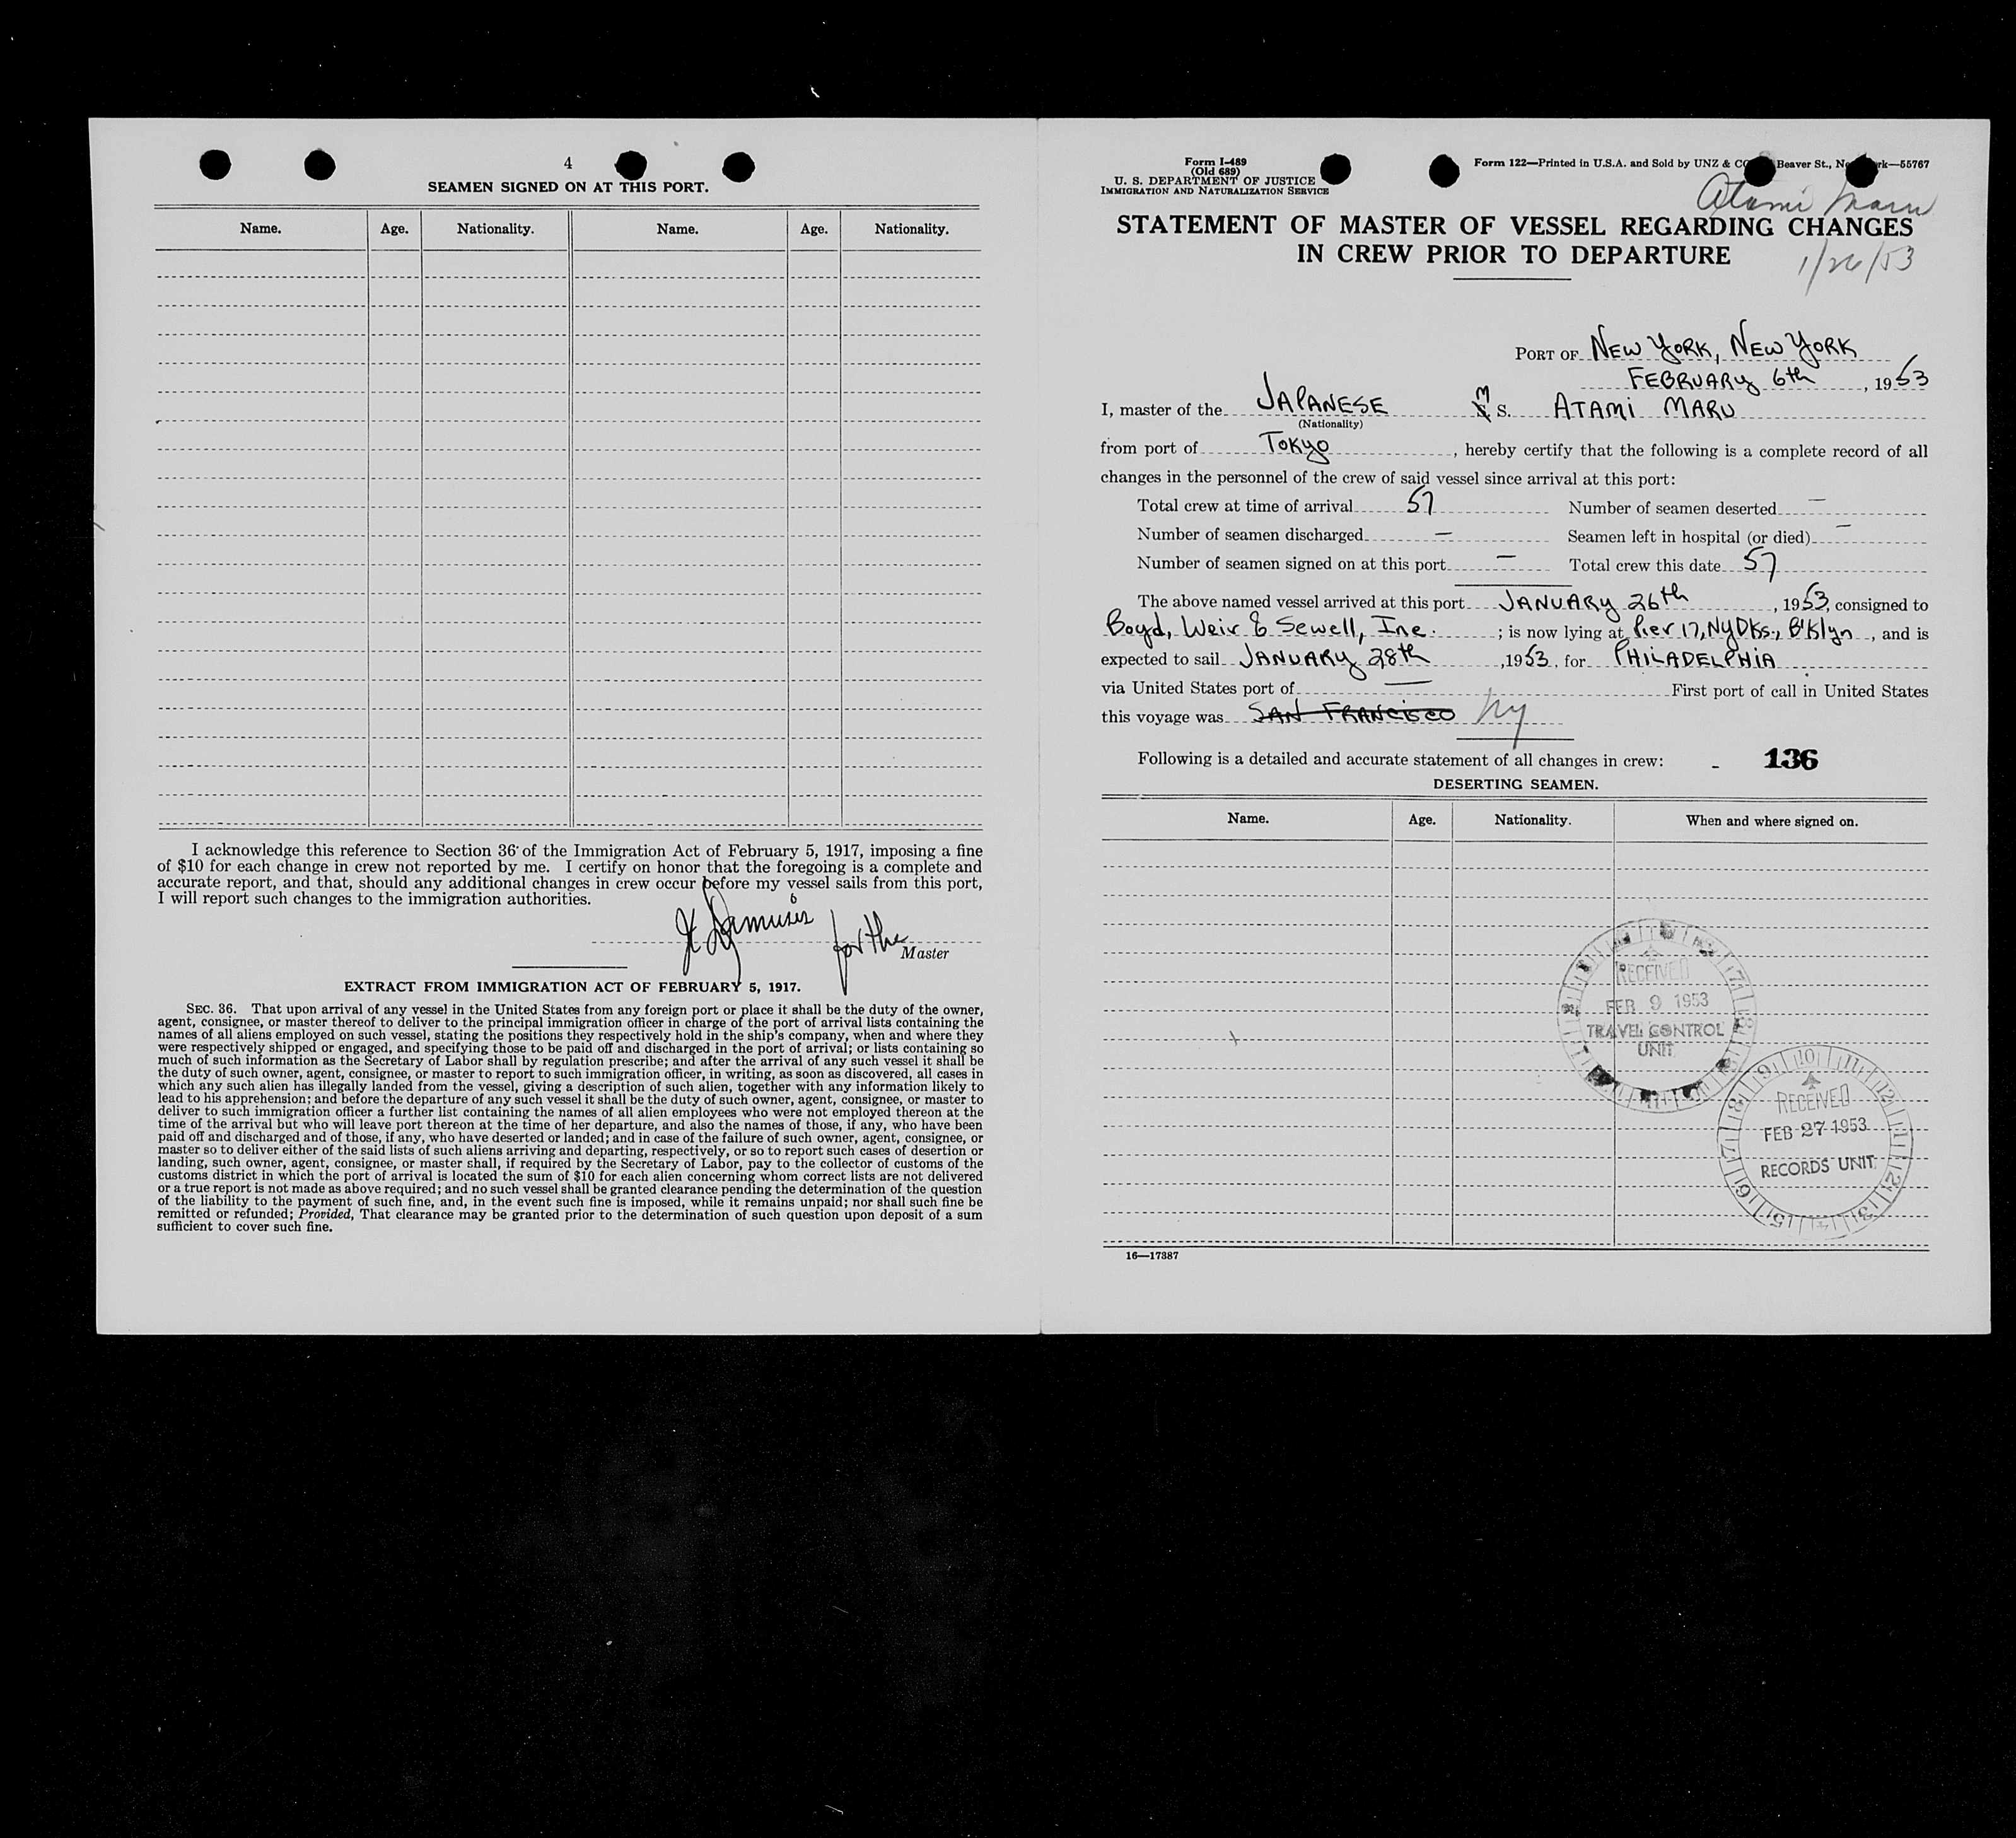 4
SEAMEN SIGNED ON AT THIS PORT.
Name. Age. Nationality. Name. Age. Nationality.
I acknowledge this reference to Section 36 of the Immigration Act of February 5, 1917, imposing a fine
of $10 for each change in crew not reported by me. I certify on honor that the foregoing is a complete and
accurate report, and that, should any additional changes in crew occur before my vessel sails from this port,
I will report such changes to the immigration authorities.
for the
Master
EXTRACT FROM IMMIGRATION ACT OF FEBRUARY 5, 1917.
SEC. 36. That upon arrival of any vessel in the United States from any foreign port or place it shall be the duty of the owner,
agent, consignee, or master thereof to deliver to the principal immigration officer in charge of the port of arrival lists containing the
names of all aliens employed on such vessel, stating the positions they respectively hold in the ship's company, when and where they
were respectively shipped or engaged, and specifying those to be paid off and discharged in the port of arrival; or lists containing so
much of such information as the Secretary of Labor shall by regulation prescribe; and after the arrival of any such vessel it shall be
the duty of such owner, agent, consignee, or master to report to such immigration officer, in writing, as soon as discovered, all cases in
which any such alien has illegally landed from the vessel, giving a description of such alien, together with any information likely to
lead to his apprehension; and before the departure of any such vessel it shall be the duty of such owner, agent, consignee, or master to
deliver to such immigration officer a further list containing the names of all alien employees who were not employed thereon at the
time of the arrival but who will leave port thereon at the time of her departure, and also the names of those, if any, who have been
paid off and discharged and of those, if any, who have deserted or landed; and in case of the failure of such owner, agent, consignee, or
master so to deliver either of the said lists of such aliens arriving and departing, respectively, or so to report such cases of desertion or
landing, such owner, agent, consignee, or master shall, if required by the Secretary of Labor, pay to the collector of customs of the
customs district in which the port of arrival is located the sum of $10 for each alien concerning whom correct lists are not delivered
or a true report is not made as above required; and no such vessel shall be granted clearance pending the determination of the question
of the liability to the payment of such fine, and, in the event such fine is imposed, while it remains unpaid; nor shall such fine be
remitted or refunded; Provided, That clearance may be granted prior to the determination of such question upon deposit of a sum
sufficient to cover such fine.
Form I-489
(Old 689)
U. S. DEPARTMENT OF JUSTICE
IMMIGRATION AND NATURALIZATION SERVICE
Form 122—Printed in U.S.A. and Sold by UNZ & CO Beaver St., New York—55767
Atami Maru
STATEMENT OF MASTER OF VESSEL REGARDING CHANGES
IN CREW PRIOR TO DEPARTURE
1/26/53
PORT OF NEW YORK, NEW YORK
FEBRUARY 6th, 1953
I, master of the JAPANESE M S. ATAMI MARU
(Nationality)
from port of TOKYO, hereby certify that the following is a complete record of all
changes in the personnel of the crew of said vessel since arrival at this port:
Total crew at time of arrival 57 Number of seamen deserted —
Number of seamen discharged — Seamen left in hospital (or died) —
Number of seamen signed on at this port — Total crew this date 57
The above named vessel arrived at this port JANUARY 26th, 1953, consigned to
Boyd, Weir & Sewell, Inc. ; is now lying at Pier 17, NYDKs., B'Klyn, and is
expected to sail JANUARY 28th, 1953, for PHILADELPHIA
via United States port of — First port of call in United States
this voyage was SAN FRANCISCO NY
Following is a detailed and accurate statement of all changes in crew: - 136
DESERTING SEAMEN.
Name. Age. Nationality. When and where signed on.
RECEIVED
FEB 9 1953
TRAVEL CONTROL
UNIT
RECEIVED
FEB 27 1953
RECORDS UNIT
16—17387